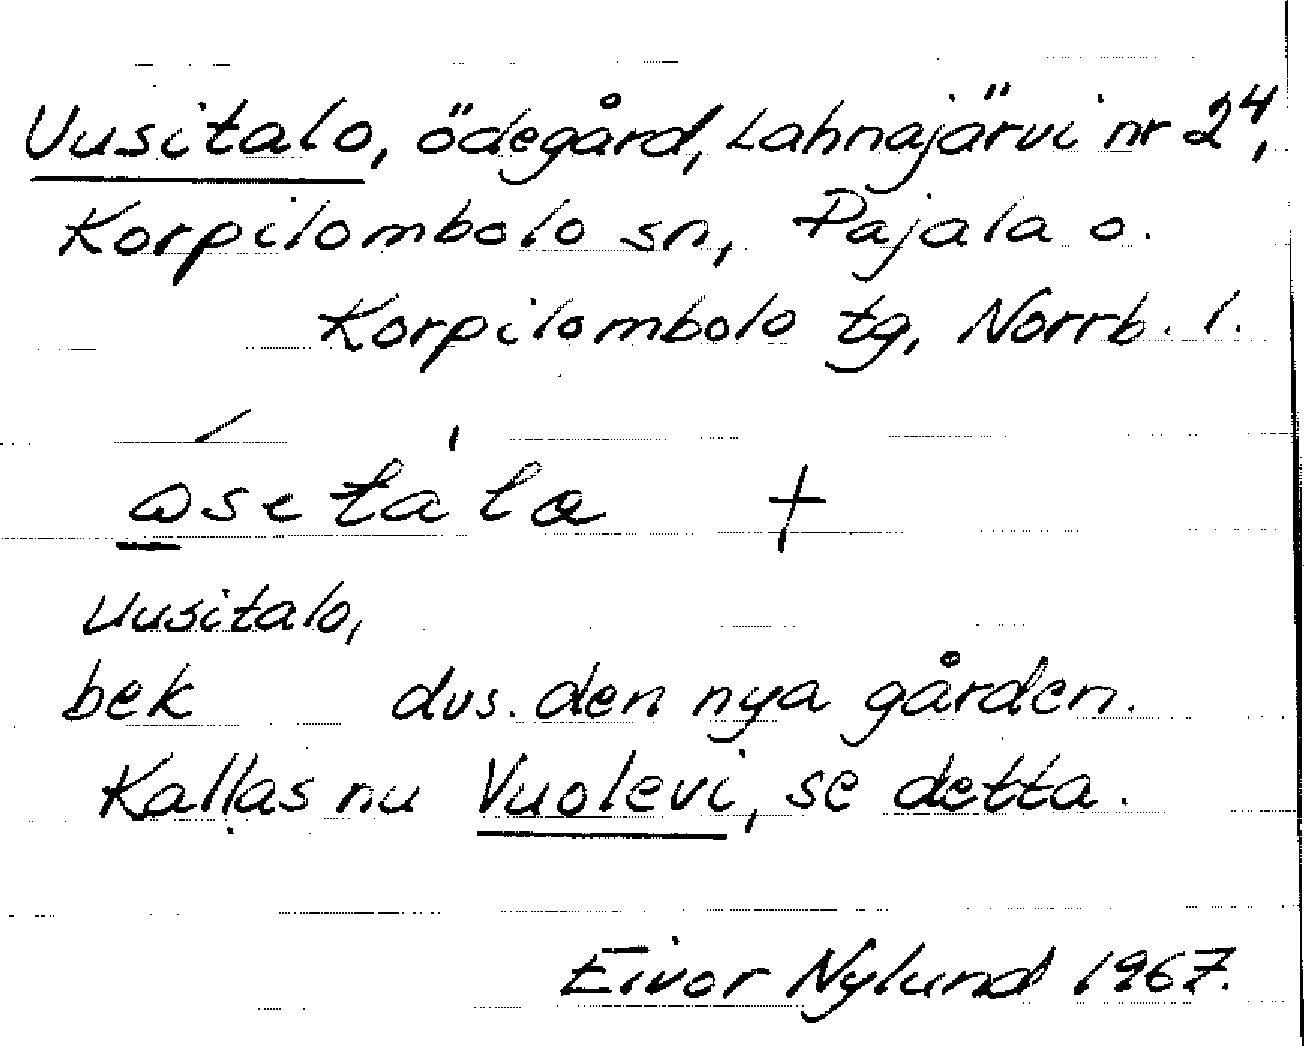 Uusitalo, ödegård, Lahnajärvi nr 2⁴,
Korpilombolo sn, Pajala o.
Korpilombolo tg, Norrb. l.
+
Uusitalo,
bek dvs. den nya gården.
Kallas nu Vuolevi, se detta.
Eivor Nylund 1967.